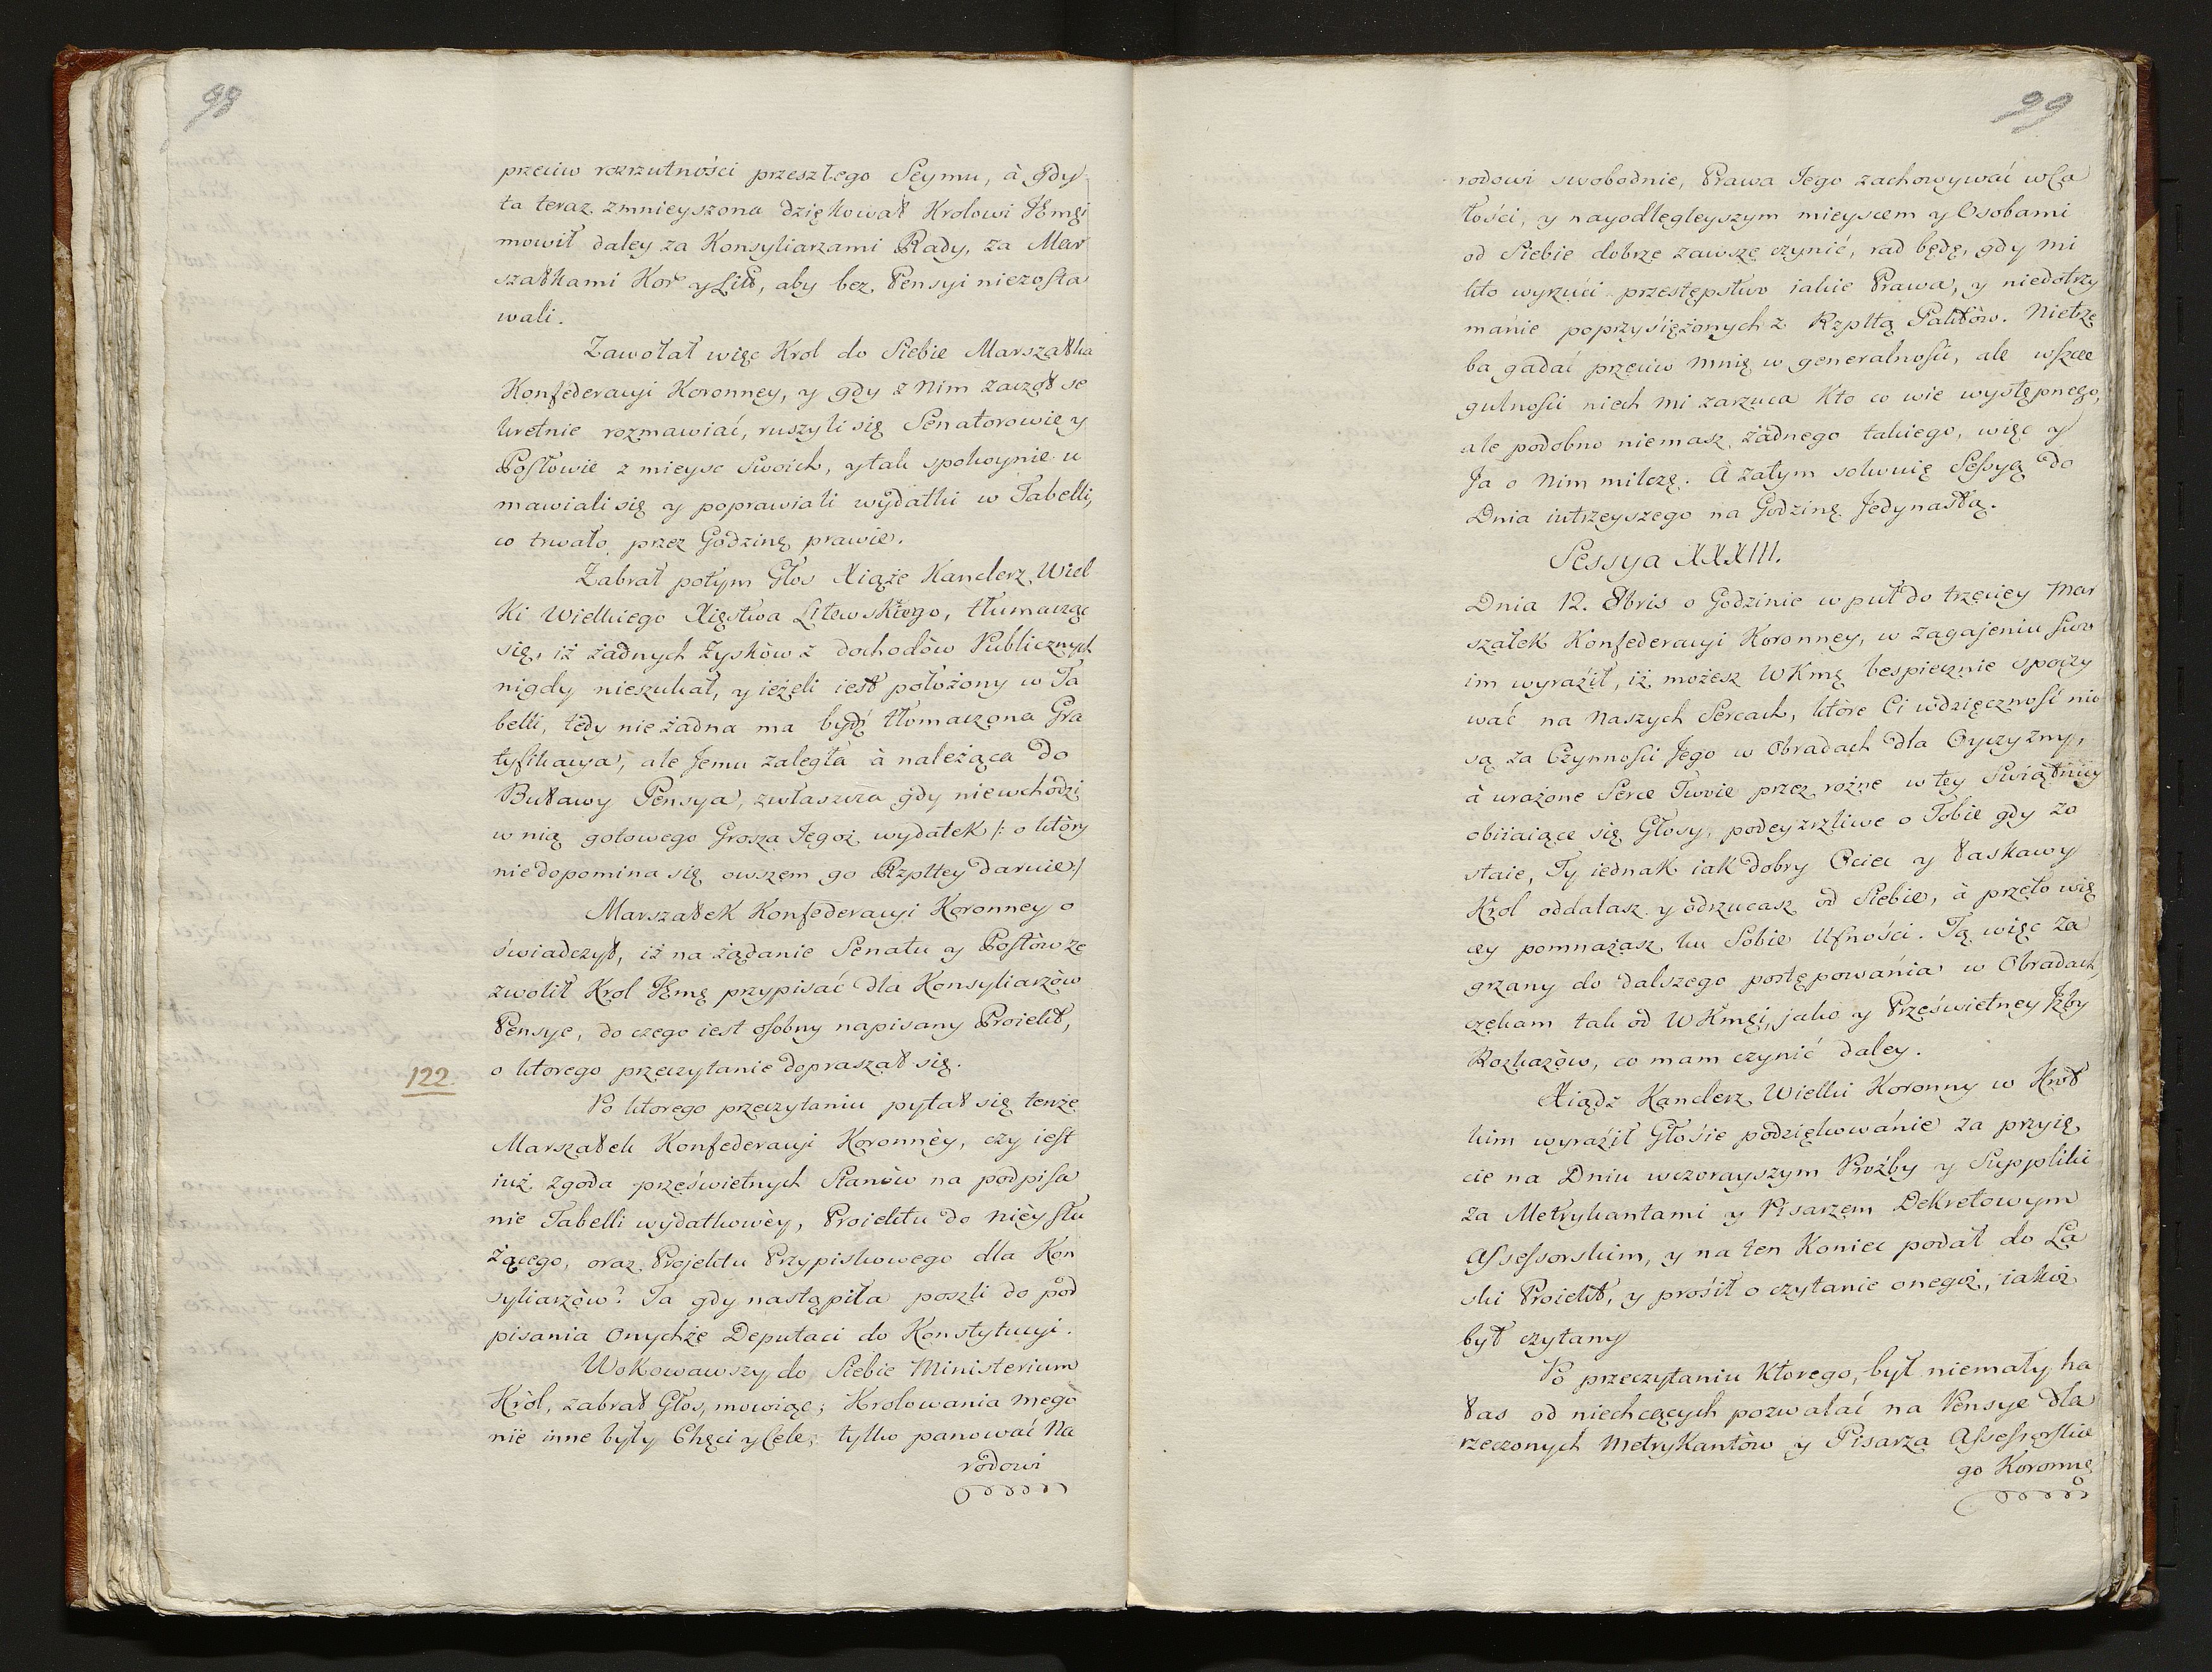 98
przeciw rozrzutności przeszłego Seymu, à gdy
ta teraz zmnieyszona dziękował Krolowi JKmci
mowił daley za Konsyliarzami Rady, za Mar
szałkami Kor y Litt, aby bez Pensyi niezosta
wali.
Zawołał więc Krol do Siebie Marszałka
Konfederacyi Koronney, y gdy z Nim zaczął se
kretnie rozmawiać, ruszyli się Senatorowie y
Posłowie z mieysc Swoich, y tak spokoynie u
mawiali się y poprawiali wydatki w Tabelli,
co trwało przez Godzinę prawie.
Zabrał potym Głos Xiąże Kanclerz Wiel
Ki Wielkiego Xięstwa Litewskiego, tłumacząc
się, iż żadnych Zysków z dochodów Publicznych
nigdy nieszukał, y ieżeli iest położony w Ta
belli, tedy nie żadna ma bydź tłomaczona Gra
tyfikacya, ale Jemu zaległa à należąca do
Buławy Pensya, zwłaszcza gdy niewchodzi
w nią gotowego Grosza Jegoż wydatek /: o który
niedopomina się owszem go Rzpltey daruie:/
Marszałek Konfederacyi Koronney o
świadczył, iż na żądanie Senatu y Posłów ze
zwolił Krol JKmć przypisać dla Konsyliarzów
Pensye, do czego iest osobny napisany Proiekt,
o ktorego przeczytanie dopraszał się.
122
Po ktorego przeczytaniu pytał się tenże
Marszałek Konfederacyi Koronnèy, czy iest
iuż zgoda prześwietnych Stanów na podpisa
nie Tabelli wydatkowèy, Proiektu do nièy słu
żącego, oraz Projektu Przypiskowego dla Kon
syliarzów? Ta gdy nastąpiła poszli do pod
pisania Onychże Deputaci do Konstytucyi.
Wokowawszy do Siebie Ministerium
Król, zabrał Głos, mowiąc; Krolowania mego
nie inne były Chęci y Cele, tylko panować Na
rodowi
99
rodowi swobodnie, Prawa Jego zachowywać w Ca
łości, y nayodlegleyszym mieyscem y Osobami
od Siebie dobrze zawsze czynić, rad będę, gdy mi
kto wyrzuci przestępstwo iakie Prawa, y niedotrzy
manie poprzysiężonych z Rzpltą Paktów. Nietrze
ba gadać przeciw mnię w generalności, ale wszcze
gulności niech mi zarzuca Kto co wie występnego,
ale podobno niemasz żadnego takiego, więc y
Ja o Nim milczę. A zatym solwuię Sessyą do
Dnia iutrzeyszego na Godzinę Jedynastą.
Sessya XXXIII.
Dnia 12. 8bris o Godzinie w puł do trzeciey Mar
szałek Konfederacyi Koronney, w Zagajeniu swo
im wyraźił, iż możesz WKmć bespiecznie spoczy
wać na Naszych Sercach, które Ci wdzięczność nio
są za Czynności Jego w Obradach dla Oyczyzny,
à urażone Serce Twoie przez rożne w tey Swiątnicy
obiiaiące się Głosy, podeyzrzliwe o Tobie gdy zo
staie, Ty iednak iak dobry Ociec y łaskawy
Krol oddalasz y odrzucasz od Siebie, à przeto wię
cey pomnażasz ku Sobie Ufności. Tą więc Za
grzany do dalszego postępowania w Obradach,
czekam tak od WKmci, jako y Prześwietney Jzby
Rozkazów, co mam czynić daley.
Xiądz Kanclerz Wielki Koronny w Krot
kim wyraźił Głosie podziękowanie za przyię
cie na Dniu wczorayszym Proźby y Suppliki
za Metrykantami y Pisarzem Dekretowym
Assessorskim, y na ten Koniec podał do La
ski Proiekt, y prosił o czytanie onegoż, iakoż
był czytany
Po przeczytaniu Ktorego, był niemały ha
łas od niechcących pozwalać na Pensye dla
rzeczonych Metrykantów y Pisarza Assessorskie
go Koronne